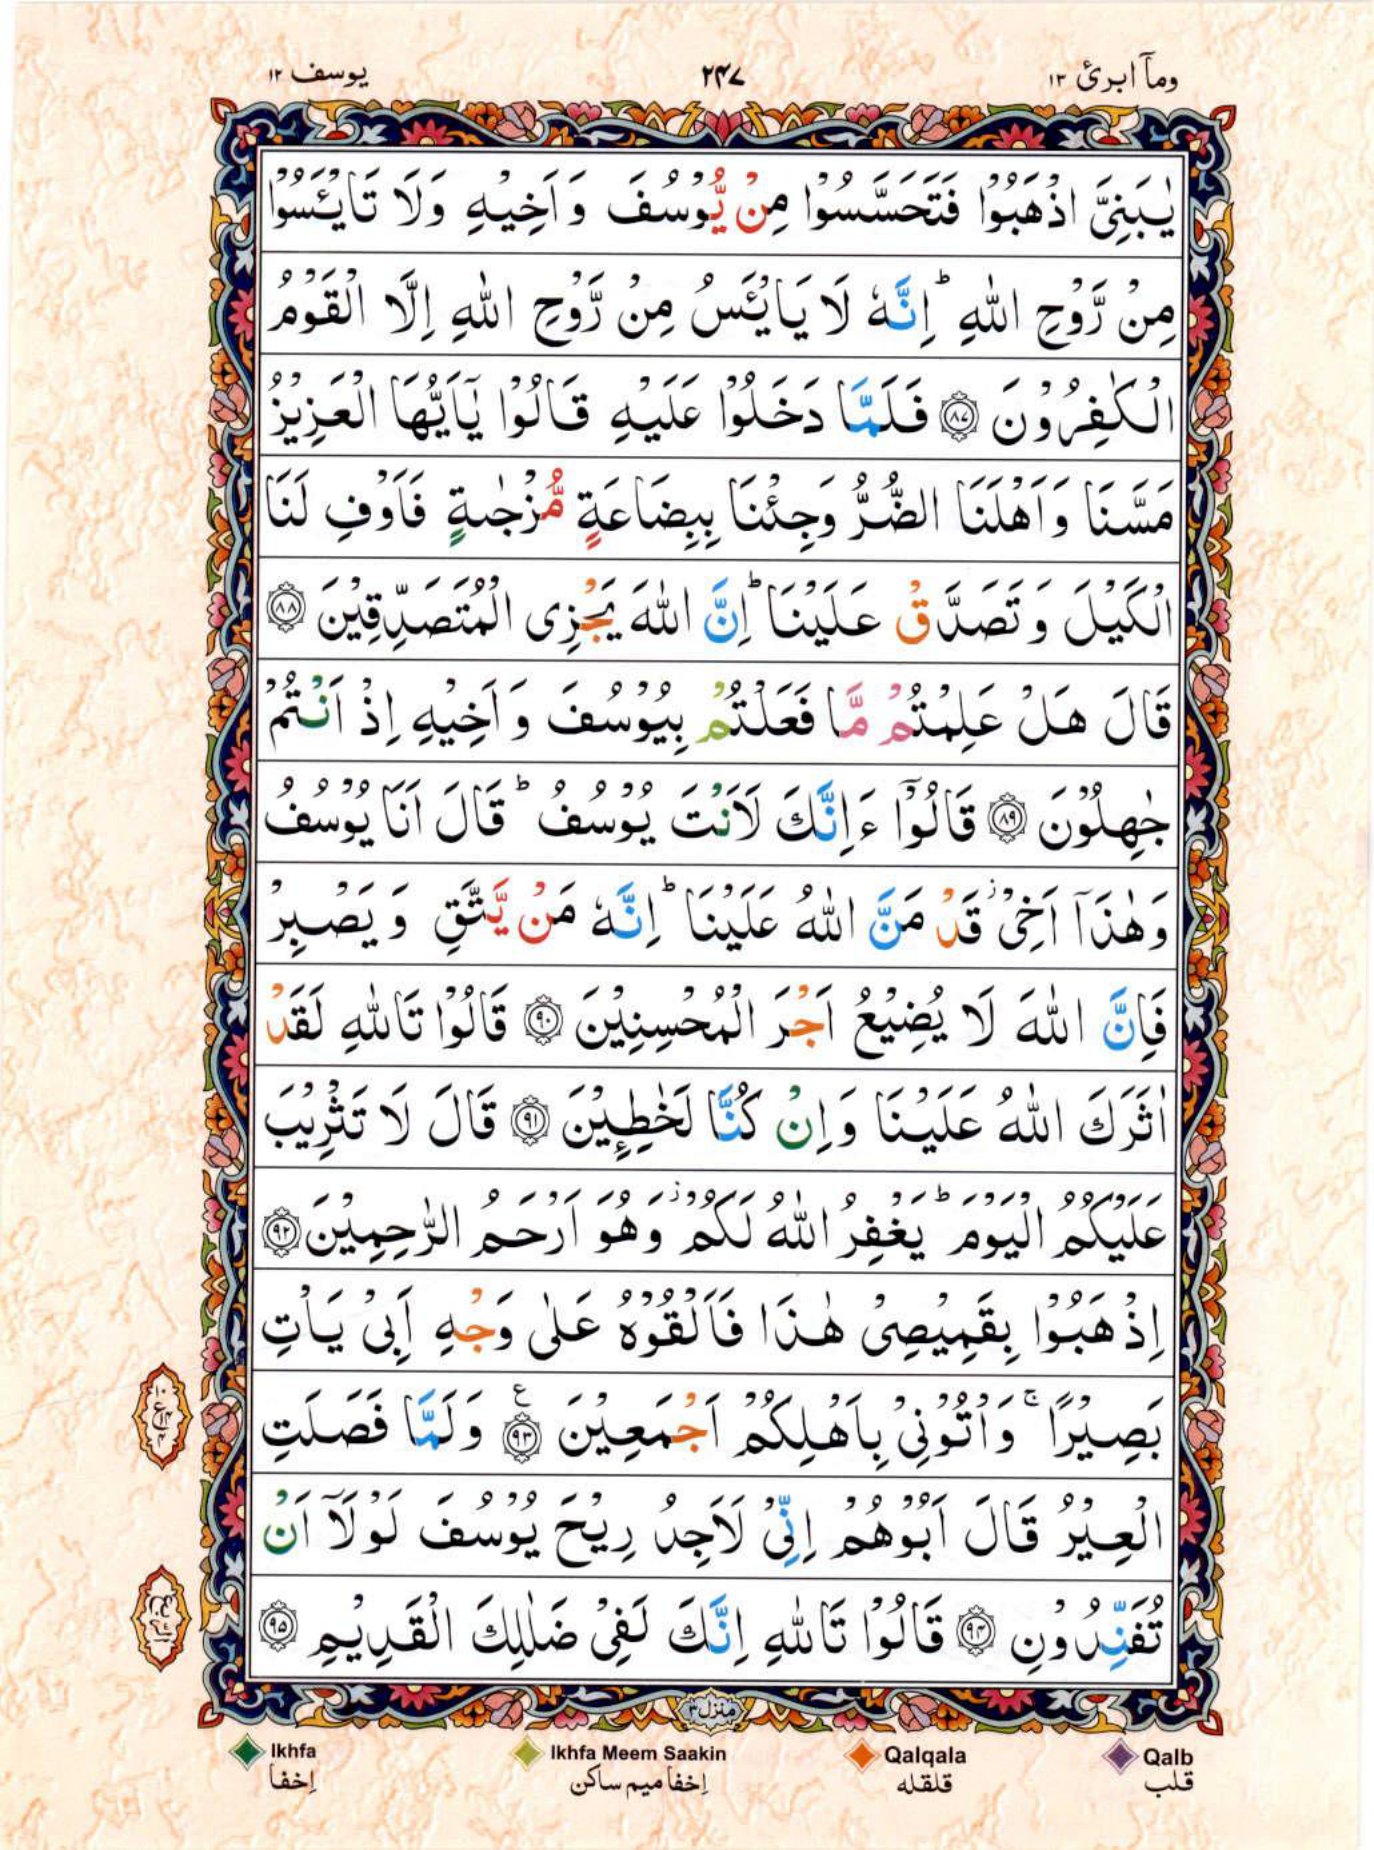 وماۤ ابرئ ۱۳
۲۴۷
یوسف ۱۲
یٰبَنِیَّ اذْهَبُوْا فَتَحَسَّسُوْا مِنْ یُّوْسُفَ وَ اَخِیْهِ وَلَا تَایْـَٔسُوْا
مِنْ رَّوْحِ اللّٰهِ ؕ اِنَّهٗ لَا یَایْـَٔسُ مِنْ رَّوْحِ اللّٰهِ اِلَّا الْقَوْمُ
الْكٰفِرُوْنَ ۸۷ فَلَمَّا دَخَلُوْا عَلَیْهِ قَالُوْا یٰۤاَیُّهَا الْعَزِیْزُ
مَسَّنَا وَ اَهْلَنَا الضُّرُّ وَجِئْنَا بِبِضَاعَةٍ مُّزْجٰىةٍ فَاَوْفِ لَنَا
الْكَیْلَ وَ تَصَدَّقْ عَلَیْنَا ؕ اِنَّ اللّٰهَ یَجْزِی الْمُتَصَدِّقِیْنَ ۸۸
قَالَ هَلْ عَلِمْتُمْ مَّا فَعَلْتُمْ بِیُوْسُفَ وَ اَخِیْهِ اِذْ اَنْتُمْ
جٰهِلُوْنَ ۸۹ قَالُوْۤا ءَاِنَّكَ لَاَنْتَ یُوْسُفُ ؕ قَالَ اَنَا یُوْسُفُ
وَهٰذَاۤ اَخِیْ ؗ قَدْ مَنَّ اللّٰهُ عَلَیْنَا ؕ اِنَّهٗ مَنْ یَّتَّقِ وَ یَصْبِرْ
فَاِنَّ اللّٰهَ لَا یُضِیْعُ اَجْرَ الْمُحْسِنِیْنَ ۹۰ قَالُوْا تَاللّٰهِ لَقَدْ
اٰثَرَكَ اللّٰهُ عَلَیْنَا وَ اِنْ كُنَّا لَخٰطِـِٕیْنَ ۹۱ قَالَ لَا تَثْرِیْبَ
عَلَیْكُمُ الْیَوْمَ ؕ یَغْفِرُ اللّٰهُ لَكُمْ ؗ وَهُوَ اَرْحَمُ الرّٰحِمِیْنَ ۹۲
اِذْهَبُوْا بِقَمِیْصِیْ هٰذَا فَاَلْقُوْهُ عَلٰی وَجْهِ اَبِیْ یَاْتِ
بَصِیْرًا ۚ وَاْتُوْنِیْ بِاَهْلِكُمْ اَجْمَعِیْنَ ۹۳ ع وَلَمَّا فَصَلَتِ
الْعِیْرُ قَالَ اَبُوْهُمْ اِنِّیْ لَاَجِدُ رِیْحَ یُوْسُفَ لَوْلَاۤ اَنْ
تُفَنِّدُوْنِ ۹۴ قَالُوْا تَاللّٰهِ اِنَّكَ لَفِیْ ضَلٰلِكَ الْقَدِیْمِ ۹۵
منزل ۳
Ikhfa
Ikhfa Meem Saakin
Qalqala
Qalb
اِخفا
اِخفا میم ساكن
قلقله
قلب